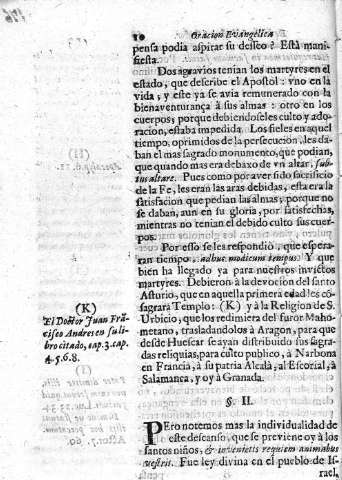 10 Oracion Evangelica
pensa podia aspirar su desseo? Està mani-
fiesta.
Dos agravios tenian los martyres en el
estado, que describe el Apostol: vno en la
vida, y este ya se avia remunerado con la
bienaventurança à sus almas: otro en los
cuerpos, porque debiendoseles culto y ado-
racion, estaba impedida. Los fieles en aquel
tiempo, oprimidos de la persecucion, les da-
ban el mas sagrado monumento, que podian,
que quando mas era debaxo de vn altar, sub-
tus altare. Pues como por aver sido sacrificio
de la Fe, les eran las aras debidas, esta era la
satisfacion que pedian las almas, porque no
se daban, aun en su gloria, por satisfechas,
mientras no tenian el debido culto sus cuer-
pos.
Por esso se les respondió, que espera-
ran tiempo, adhuc modicum tempus. Y que
bien ha llegado ya para nuestros invictos
martyres. Debieron à la devocion del santo
Asturio, que en aquella primera edad les cõ-
sagrara Templo: (K) y à la Religion de S.
Urbicio, que los redimiera del furor Maho-
metano, trasladandolos à Aragon, para que
desde Huescar se ayan distribuido sus sagra-
das reliquias, para culto publico, à Narbona
en Francia, à su patria Alcalà, al Escorial, à
Salamanca, y oy à Granada.
(K)
El Doctor Juan Frã-
cisco Andres en su li-
bro citado, cap. 3. cap.
4. 5. 6. 8.
§ II.
Pero notemos mas la individualidad de
este descanso, que se previene oy à los
santos niños, & invenietis requiem animabus
vestris. Fue ley divina en el pueblo de Is-
rael,